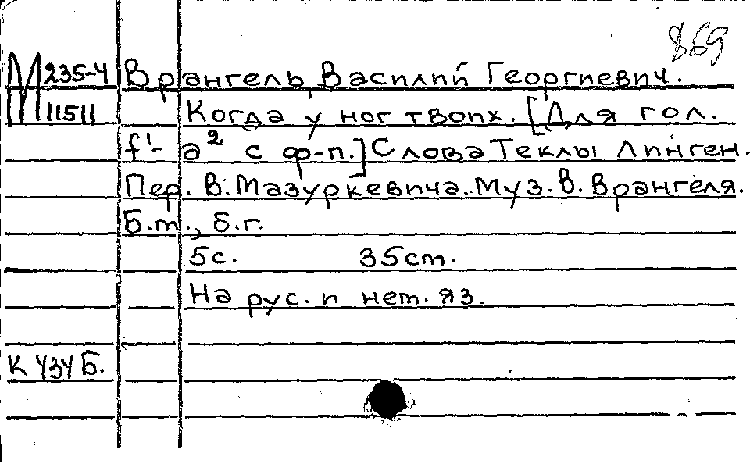 869
М 235-4 Врангель, Василий Георгиевич.
11511 Когда у ног твоих. [Для гол.
f¹- a² с ф-п.] Слова Теклы Линген.
Пер. В. Мазуркевича. Муз. В. Врангеля.
Б.т., б.г.
5с. 35ст.
На рус. и нем. яз.
К 434 Б.